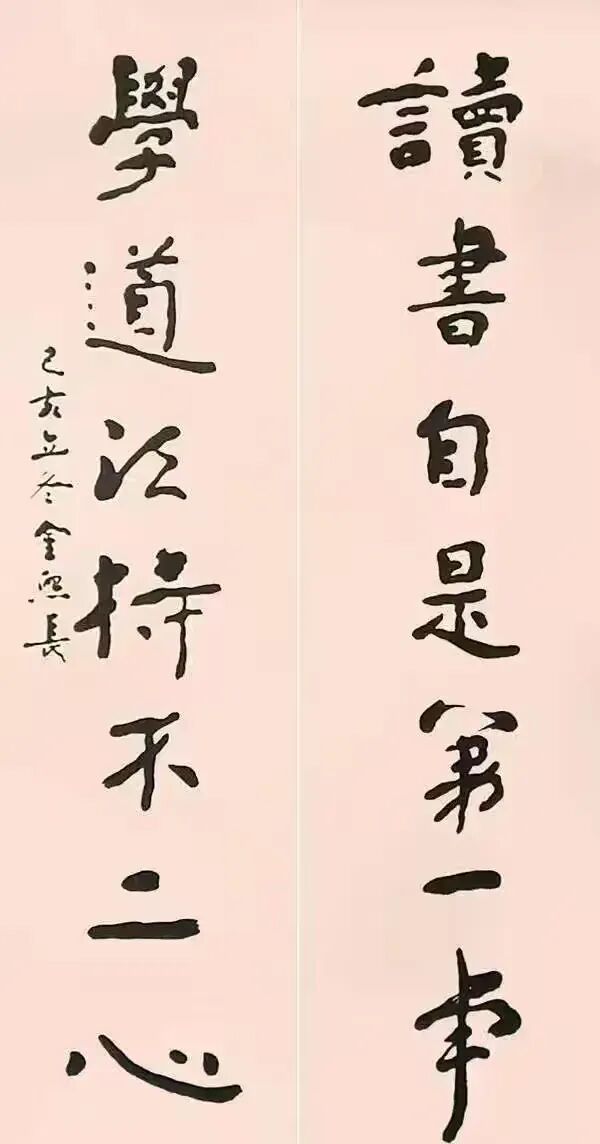 讀書自是第一事
學道須持不二心
己亥立冬金熙長